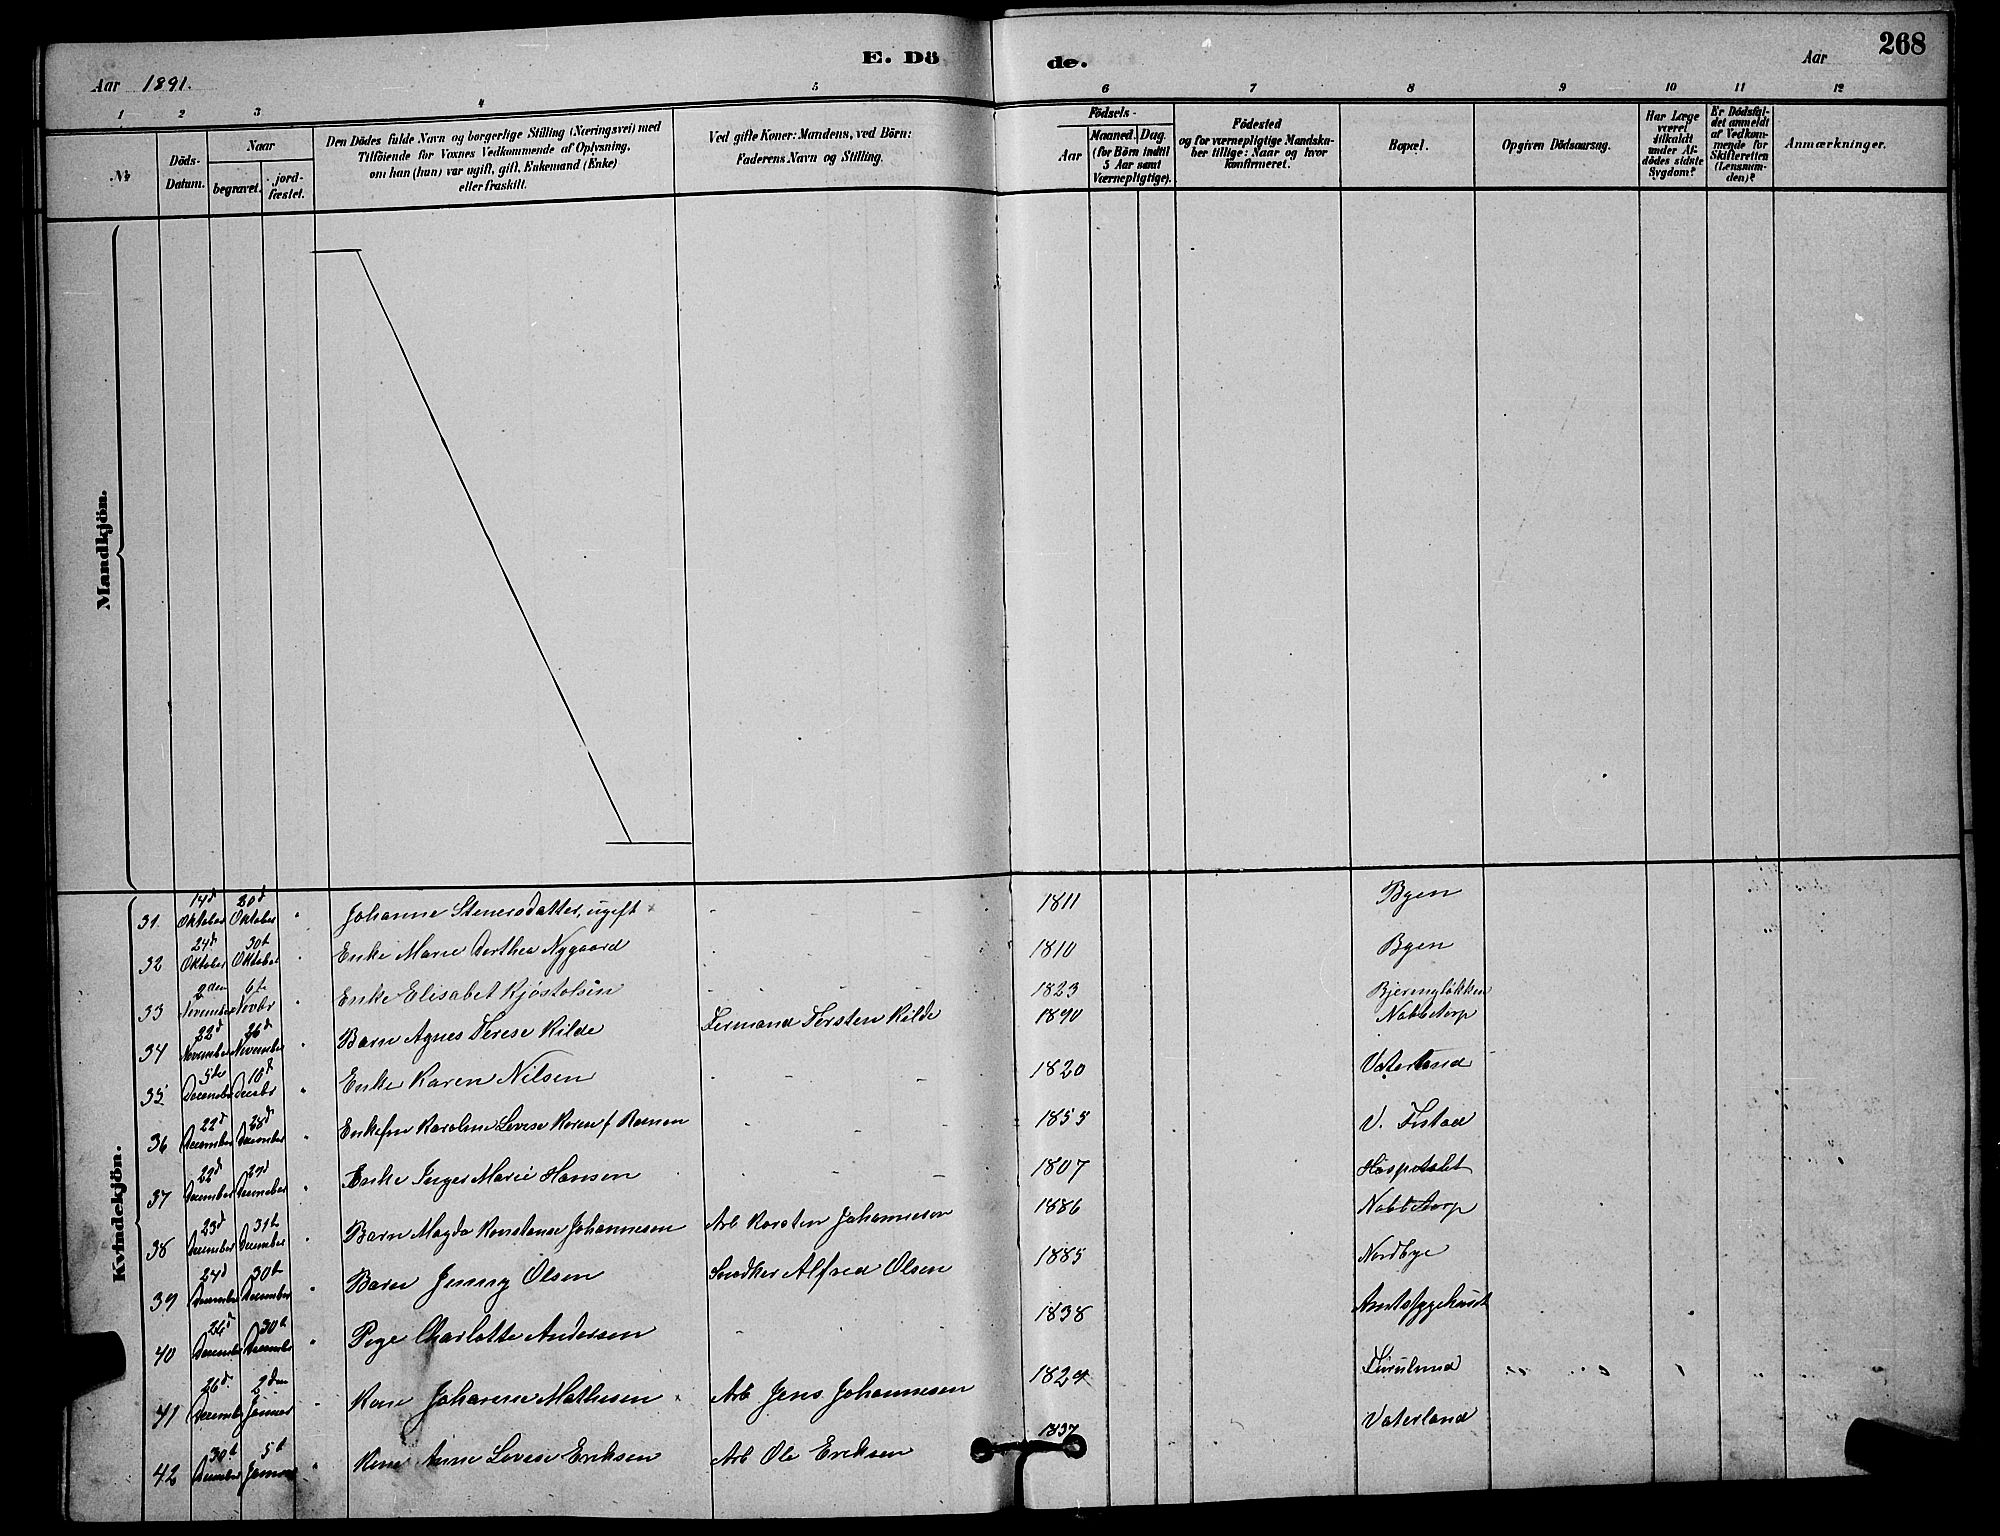 E. Dö
de.
268
Aar 1891.
Aar
1
2
3
4
5
6
7
8
9
10
11
12
No
Döds-
Datum.
Naar
begravet.
jord-
fæstet.
Den Dödes fulde Navn og borgerlige Stilling (Næringsvei) med
Tilföiende for Voxnes Vedkommende af Oplysning,
om han (hun) var ugift, gift, Enkemand (Enke)
eller fraskilt.
Ved gifte Koner: Mandens, ved Börn:
Faderens Navn og Stilling.
Födsels-
Aar
Maaned.
Dag.
(for Börn indtil
5 Aar samt
Værnepligtige).
Födested
og for værnepligtige Mandska-
ber tillige: Naar og hvor
konfirmeret.
Bopæl.
Opgiven Dödsaarsag.
Har Læge
været
tilkaldt
under Af-
dödes sidste
Sygdom?
Er Dödsfal-
det anmeldt
af Vedkom-
mende for
Skifteretten
(Lensman-
den)?
Anmærkninger.
Mandkjön.
Kvindekjön.
31 14d Oktober 20d Oktober " Johanne Stenersdatter, ugift - - - 1811 Byen
32 24d Oktober 30t Oktober " Enke Marie Dorthea Nygaard - - - 1810 Byen
33 2den November 6te Novbr " Enke Elisabet Kjøstolsen - - - 1823 Bjerringløkken
34 22d November 26d November " Barn Agnes Terese Kilde Formand Torsten Kilde 1890 Nabbetorp
35 5te December 10d Decebr " Enke Karen Nilsen - - - 1820 Vaterland
36 22d December 28d December " Enkefru Karoline Lovise Koren f. 1855 V. Fistad
37 22d December 27d December " Enke Inger Marie Hansen - - - 1807 Hospitalet
38 23d December 31te December " Barn Magda Konstanse Johannesen Arb Karsten Johannesen 1886 Nabbetorp
39 24d December 30te December " Barn Jenny Olsen Snedker Alfred Olsen 1885 Nordbye
40 26d December 30te December " Pige Charlotte Andersen - - - 1838 Amtssygehuset
41 26d December 2den Januar " Kone Johanne Mathisen Arb Jens Johannesen 1824
42 30te December 5te Januar " Kone Anne Lovise Eriksen Arb Ole Eriksen 1837 Vaterland